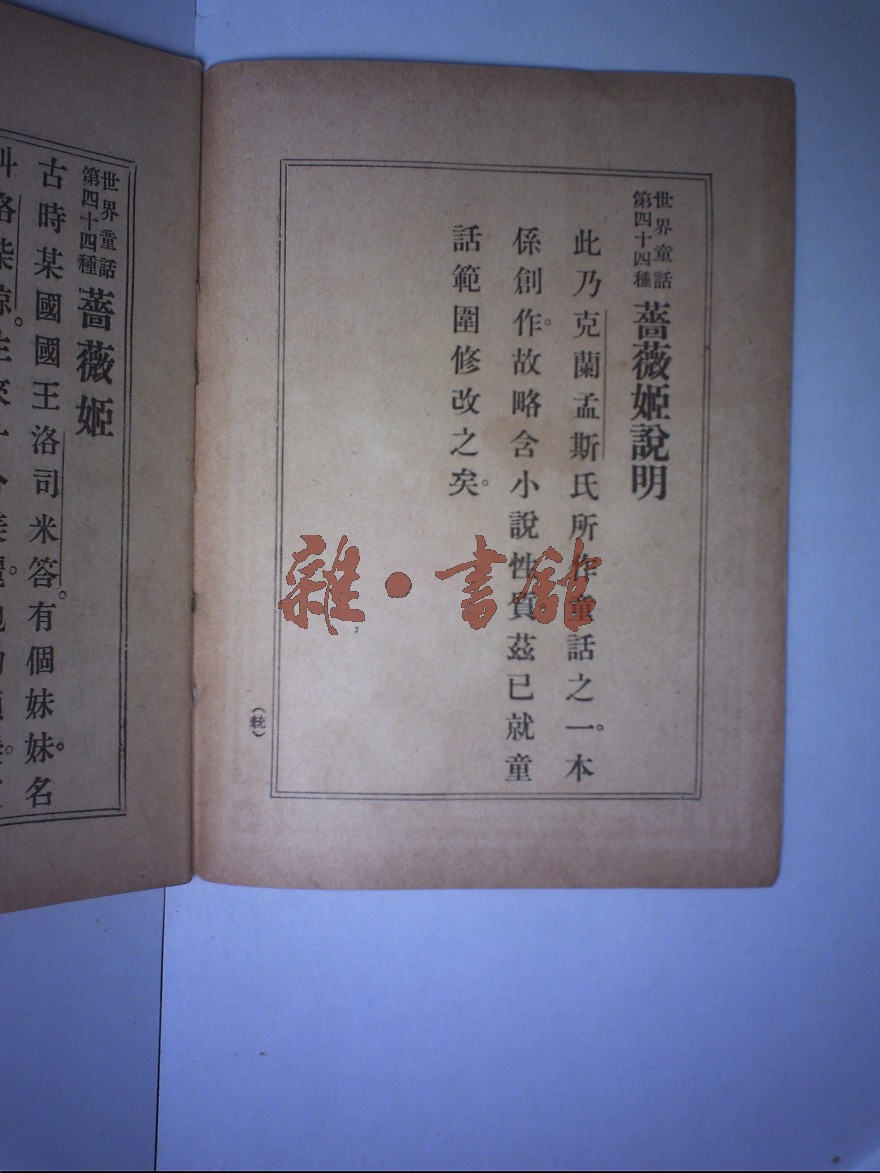 世界童話
第四十四種
薔薇姬說明
此乃克蘭孟斯氏所作童話之一。本
係創作。故略含小說性質茲已就童
話範圍修改之矣。
雜・書館
世界童話
第四十四種
薔薇姬
古時某國國王洛司米答。有個妹妹。名